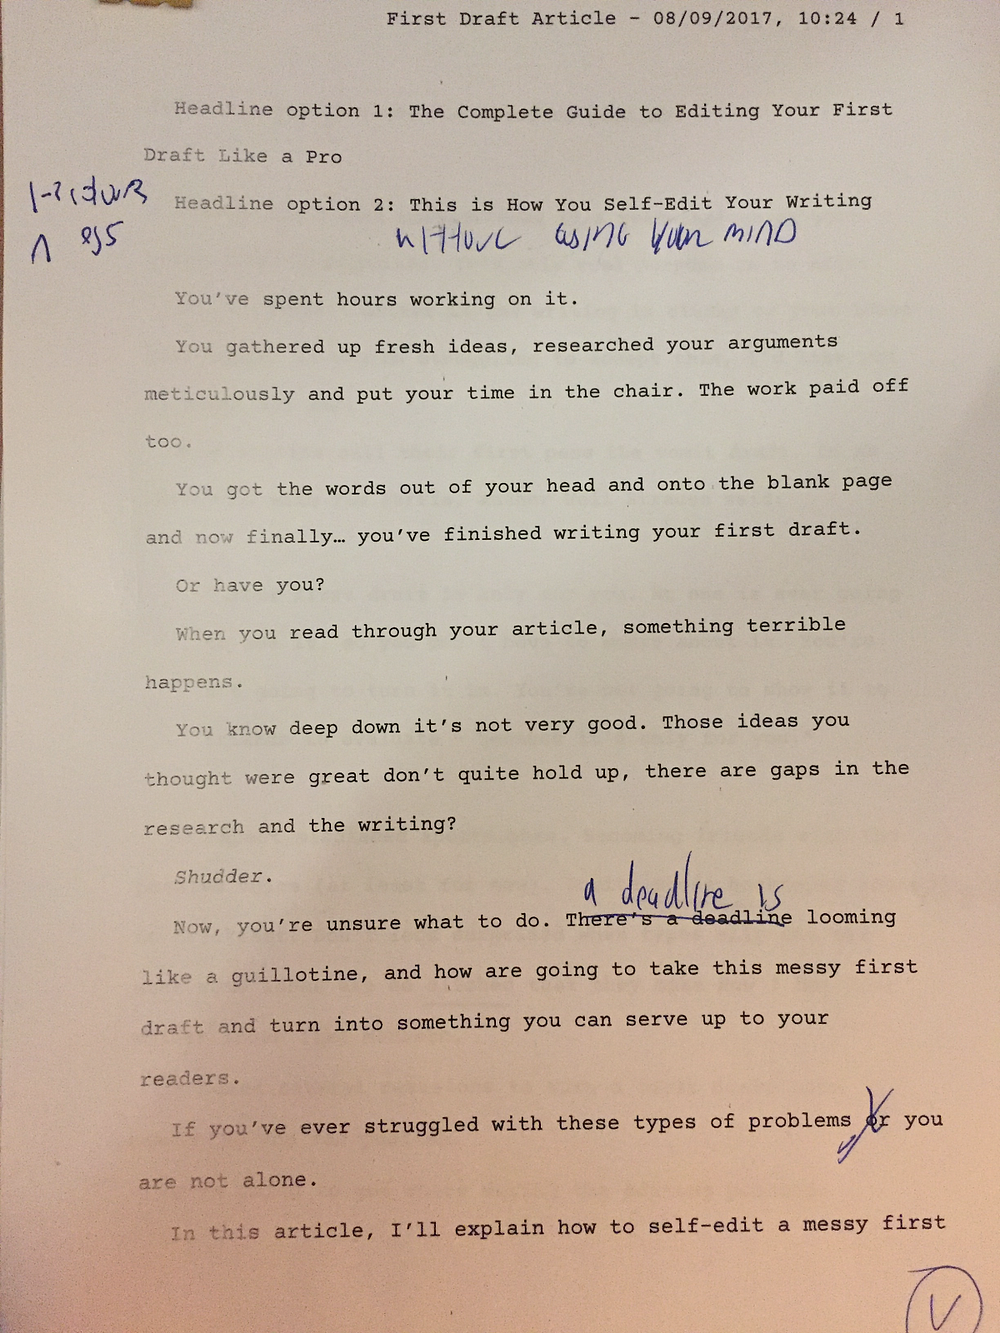 First Draft Article - 08/09/2017, 10:24 / 1
Headline option 1: The Complete Guide to Editing Your First
Draft Like a Pro
Headline option 2: This is How You Self-Edit Your Writing
without using your mind
You've spent hours working on it.
You gathered up fresh ideas, researched your arguments
meticulously and put your time in the chair. The work paid off
too.
You got the words out of your head and onto the blank page
and now finally… you've finished writing your first draft.
Or have you?
When you read through your article, something terrible
happens.
You know deep down it's not very good. Those ideas you
thought were great don't quite hold up, there are gaps in the
research and the writing?
Shudder.
a deadline is
Now, you're unsure what to do. There's a deadline looming
like a guillotine, and how are going to take this messy first
draft and turn into something you can serve up to your
readers.
If you've ever struggled with these types of problems or you
are not alone.
In this article, I'll explain how to self-edit a messy first